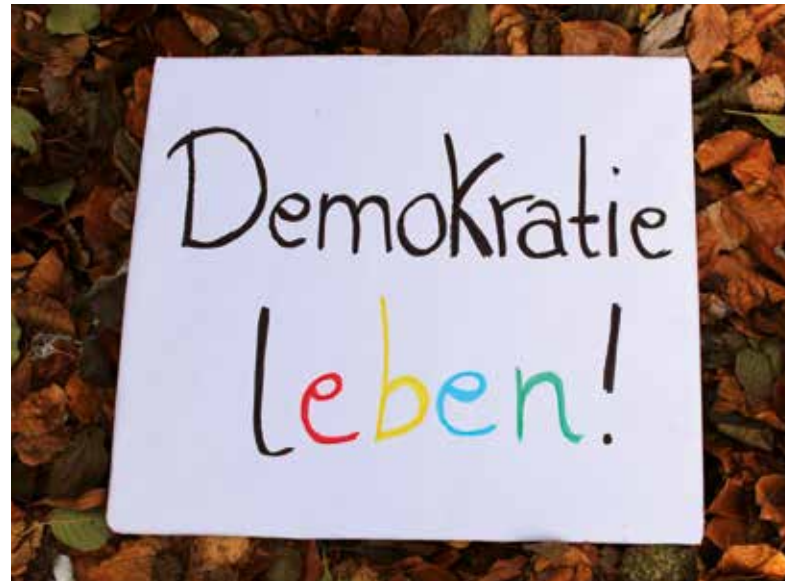 Demokratie
leben!